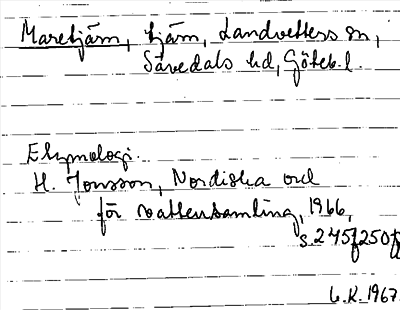 Maretjärn, tjärn, Landvetters sn,
Sävedals hd, Göteb. l.
Etymologi.
H. Jonsson, Nordiska ord
för vattensamling, 1966,
s. 245f, 250f
L.K. 1967.